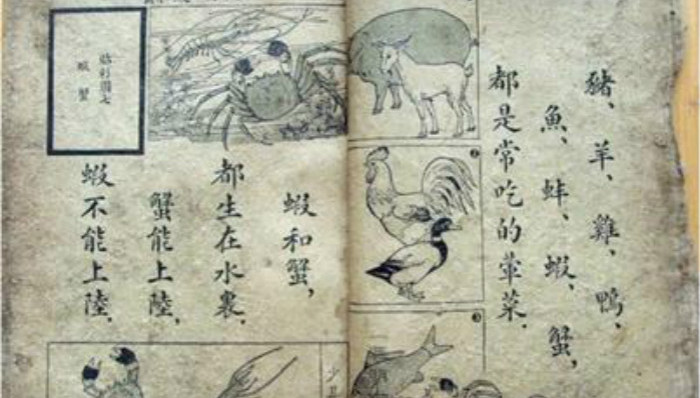 豬、羊、雞、鴨、
魚、蚌、蝦、蟹，
都是常吃的葷菜．
蝦和蟹，
都生在水裏．
蟹能上陸．
蝦不能上陸．
蝦蟹